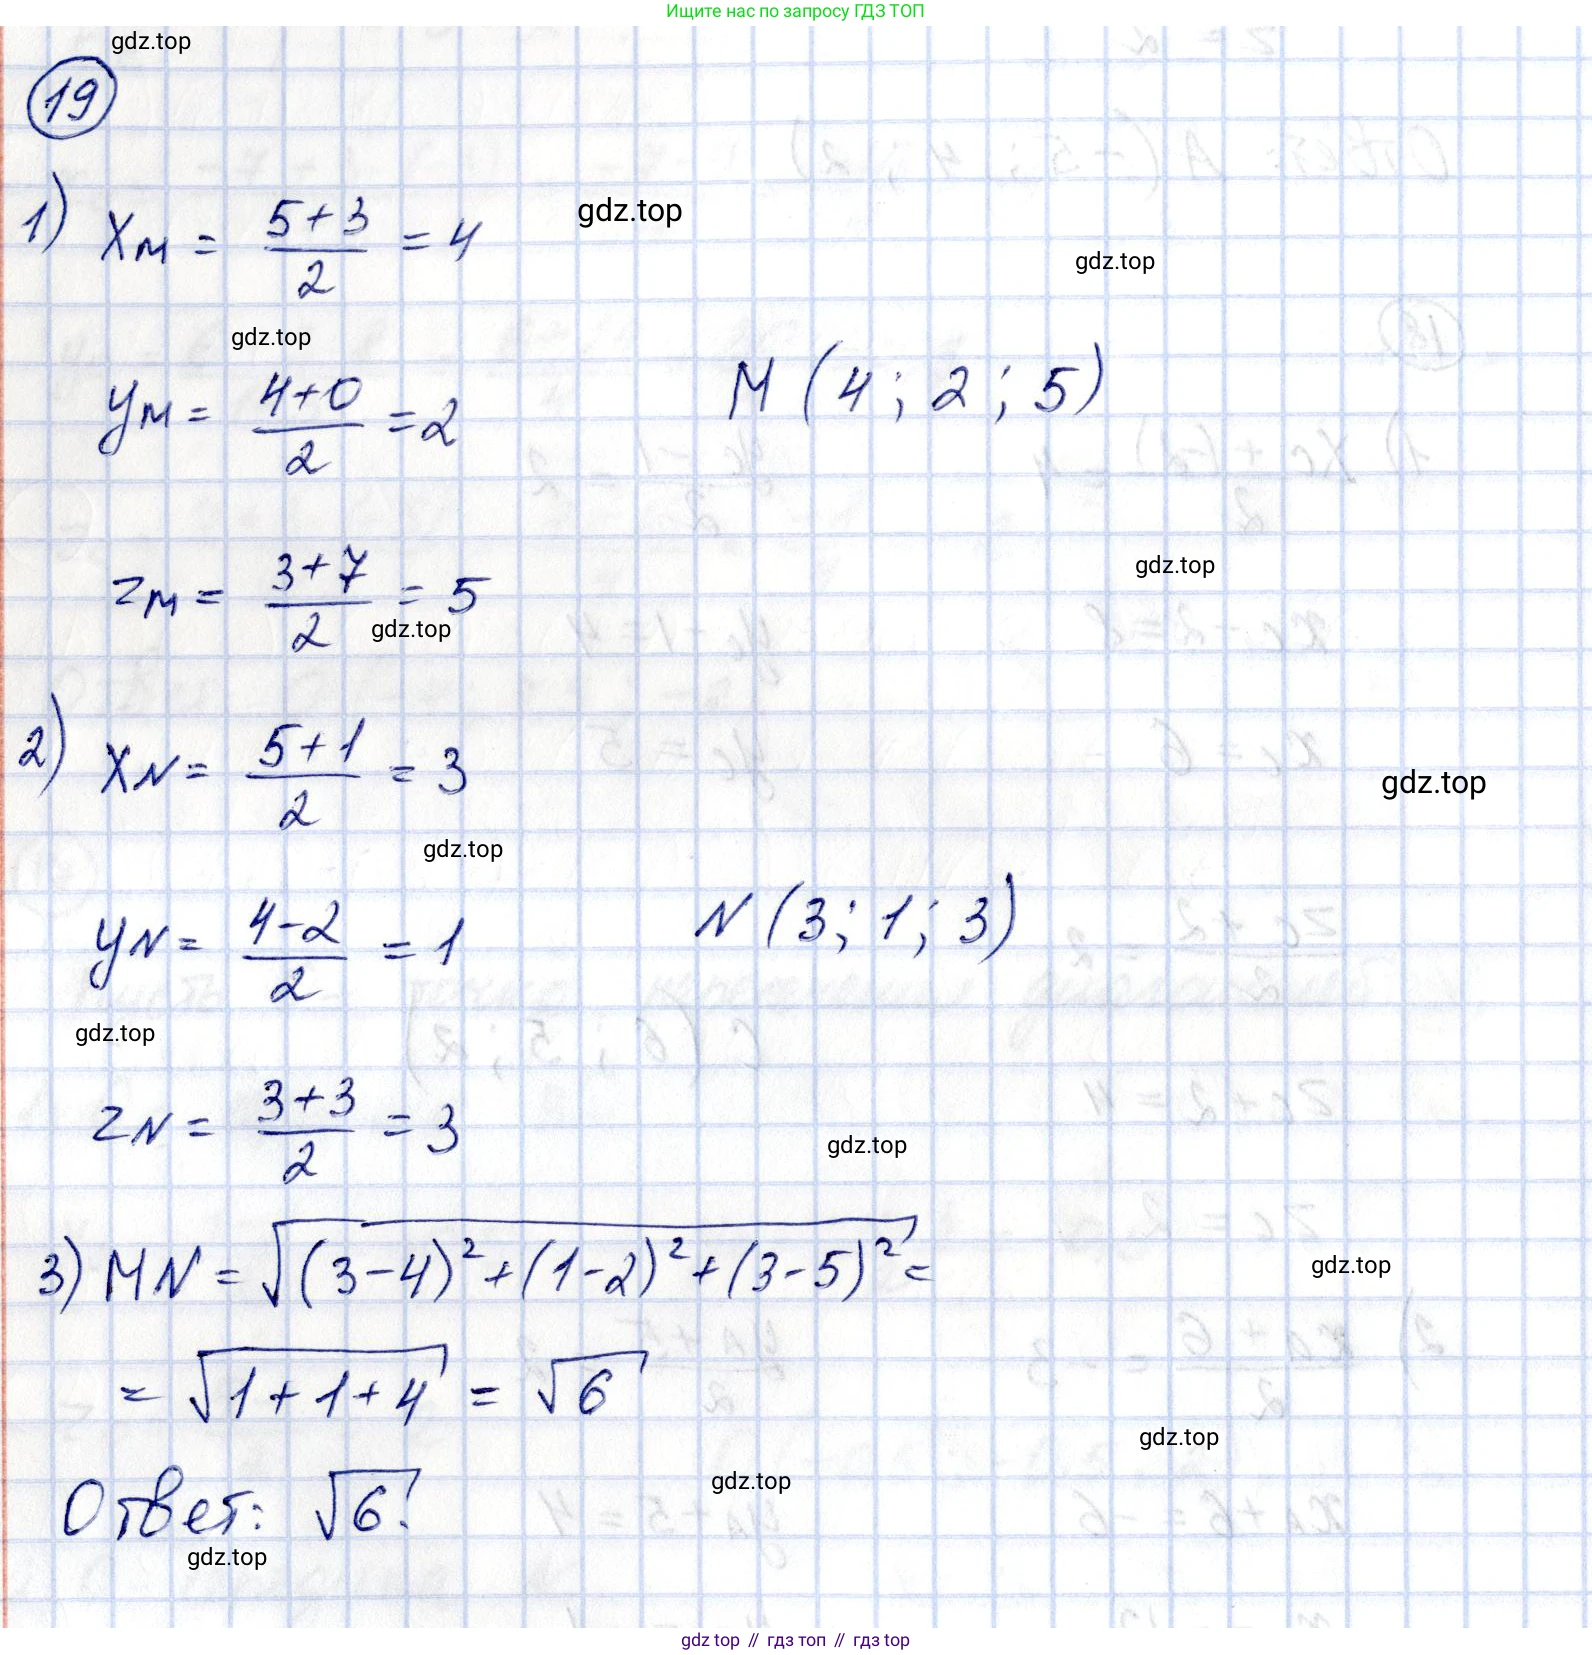 Ищите нас по запросу ГДЗ ТОП
gdz.top
19
1) xM = (5+3)/2 = 4
gdz.top
gdz.top
gdz.top
yM = (4+0)/2 = 2
M (4; 2; 5)
gdz.top
zM = (3+7)/2 = 5
gdz.top
2) xN = (5+1)/2 = 3
gdz.top
gdz.top
yN = (4-2)/2 = 1
N (3; 1; 3)
gdz.top
zN = (3+3)/2 = 3
gdz.top
3) MN = √((3-4)²+(1-2)²+(3-5)²) =
gdz.top
= √(1+1+4) = √6
gdz.top
gdz.top
Ответ: √6.
gdz.top
gdz top // гдз топ // гдз top